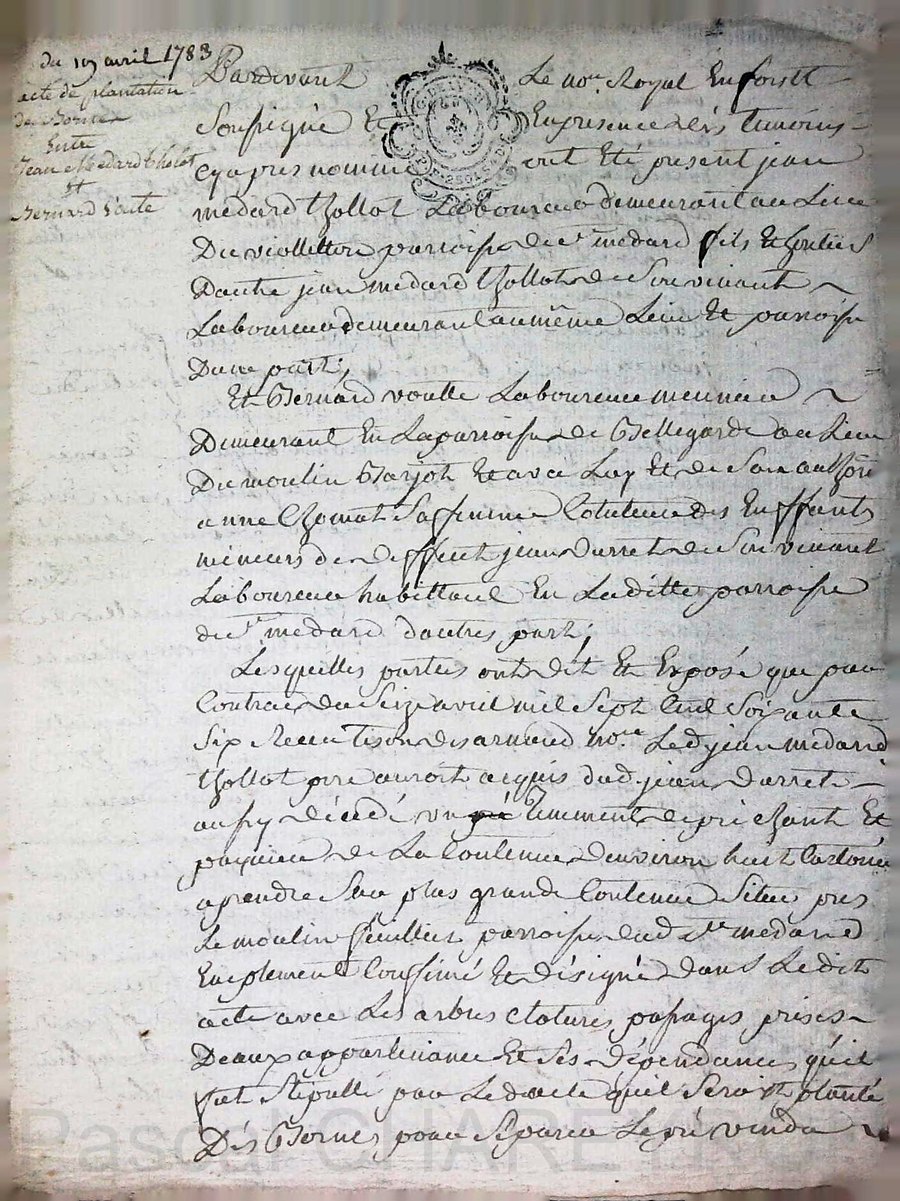 du 19 avril 1783
acte de plantation
de Borne
Entre
Jean Medard thollot
et
Bernard voute
Pardevant Le nore. Royal En forest
Soussigné Et En presence des temoins
cyapres nommé ont Eté présent jean
medard thollot Laboureur demeurant au Lieu
Du violletton parroisse de st. medard fils Et
Dautre jean medard thollot de Son vivant
Laboureur demeurant au même Lieu Et parroisse
Dune part;
Et Bernard voutte Laboureur meunier
Demeurant En La parroisse de Bellegarde au Lieu
Du moulin Barjot Et avec Luy Et de Son authôrité
anne Chomat Sa ffemme Cotutrice des Enffants
mineurs de deffunt jean Darret de Son vivant
Laboureur habittant En Laditte parroisse
de st. medard dautres part;
Lesquelles parties ont dit Et Exposé que par
Contract du Seize avril mil Sept Cent Soixante
Six Recu Tison Desarnaud nore. Led jean medard
thollot pere auroit acquis dud jean Darret
aussy décédé un Tenement de pré Chant Et
paquier de La Contenue denviron huit Cartonné
aprendre Sur plus grande Contenue Situé pres
Le moulin parroisse dud st. medard
Emplement Confiné Et désigné dans Ledit
acte avec Les arbres Clotures passages prises
Deaux appartenance Et Ses dépendances quil
fut Stipullé par Led acte quil Seroit planté
Dés Bornes pour Separer Le pré vendu
Pascal CHAREYRON